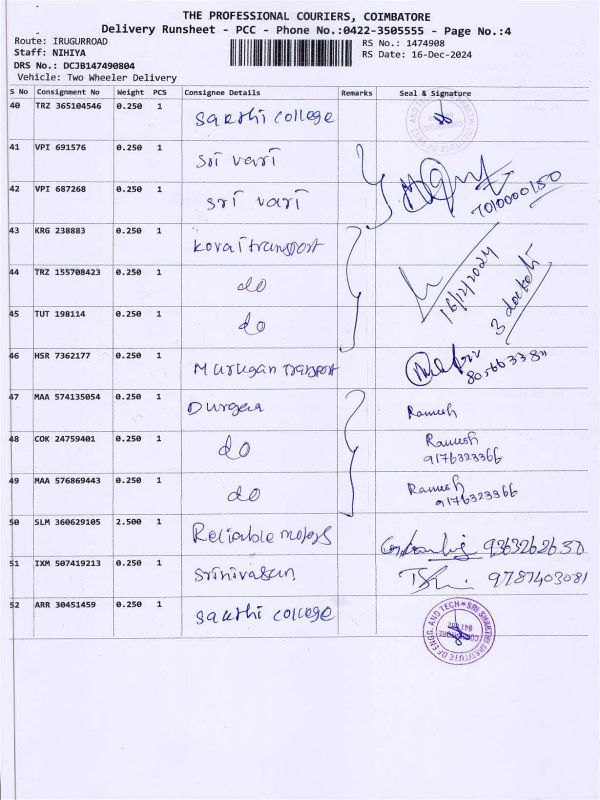 THE PROFESSIONAL COURIERS, COIMBATORE
Delivery Runsheet - PCC - Phone No.:0422-3505555 - Page No.:4
Route: IRUGURROAD
RS No.: 1474908
Staff: NIHIYA
RS Date: 16-Dec-2024
DRS No.: DCJB147490804
Vehicle: Two Wheeler Delivery
S No Consignment No Weight PCS Consignee Details Remarks Seal & Signature
40 TRZ 365104546 0.250 1 Sakthi college
41 VPI 691576 0.250 1 Sri vari
42 VPI 687268 0.250 1 Sri vari 7010000150
43 KRG 238883 0.250 1 Kovai transport
44 TRZ 155708423 0.250 1 do 16/12/2024
45 TUT 198114 0.250 1 do 3 dockets
46 HSR 7362177 0.250 1 Murugan Transport
47 MAA 574135054 0.250 1 Durga Ramesh
48 COK 24759401 0.250 1 do Ramesh
9176323366
49 MAA 576869443 0.250 1 do Ramesh
9176323366
50 SLM 360629105 2.500 1 Reliable motors 9363262650
51 IXM 507419213 0.250 1 Srinivasan 9787403081
52 ARR 30451459 0.250 1 Sakthi college
SRI SHAKTHI INSTITUTE OF ENGG. AND TECH